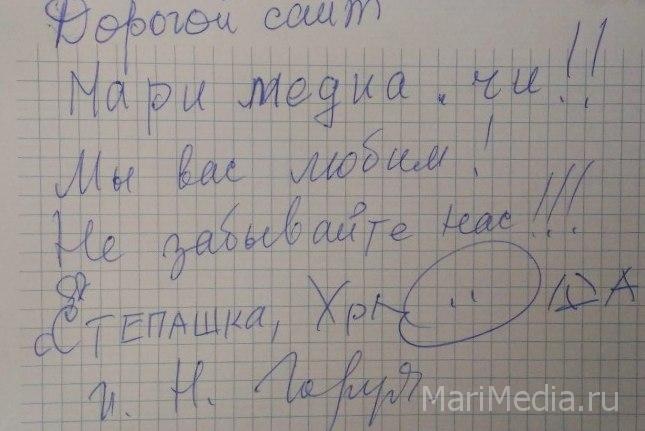 Дорогой сайт
Мари медиа.чи!!
Мы вас любим!
Не забывайте нас!!!
Степашка, Хр
и. Н.
MariMedia.ru